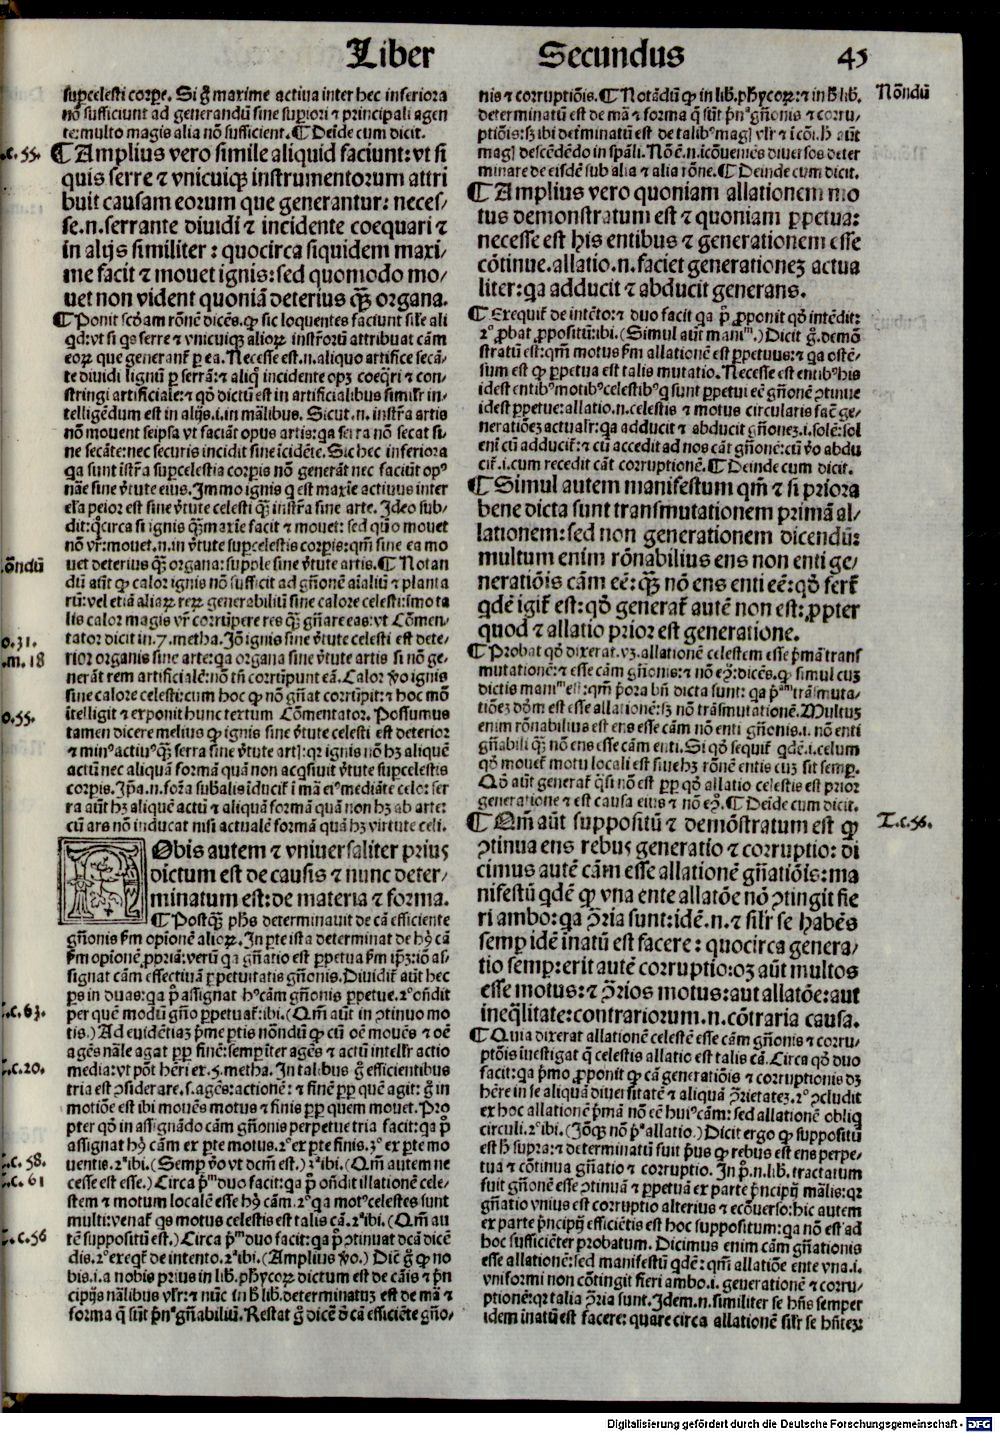 Liber Secundus 45
supcelesti corpe. Si g̃ maxime actiua inter hec inferiora
nõ sufficiunt ad generandũ sine supiori ⁊ principali agen
te: multo magis alia nõ sufficient. ¶ Deide cum dicit.
.c. 55.
¶ Amplius vero simile aliquid faciunt: vt si
quis serre ⁊ vnicuiqȝ instrumentorum attri
buit causam eorum que generantur: neces/
se .n. serrante diuidi ⁊ incidente coequari ⁊
in alijs similiter: quocirca siquidem maxi/
me facit ⁊ mouet ignis: sed quomodo mo/
uet non vident quoniã deterius qȝ̃ organa.
¶ Ponit scđam rõnẽ dicẽs. ꝙ sic loquentes faciunt sil'e ali
qđ: vt si qs serre ⁊ vnicuiqȝ alioꝝ instr̃orũ attribuat cãm
eoꝝ que generant̃ ꝑ ea. Necesse est .n. aliquo artifice secã/
te diuidi lignũ ꝑ serrã: ⁊ aliq̃ incidente opȝ coeq̃ri ⁊ con/
stringi artificiale: ⁊ qõ dictũ est in artificialibus simil'r in/
telligẽdum est in alijs .i. in nãlibus. Sicut .n. instr̃a artis
nõ mouent seipsa vt faciãt opus artis: qa serra nõ secat si/
ne secãte: nec securis incidit sine ĩcidẽte. Sic hec inferiora
qa sunt ĩstr̃a supcelestia corpis nõ generãt nec faciũt op⁹
nãe sine v̓tute eius. Immo ignis q est maxĩe actiuus inter
el'a peior est sine v̓tute celesti qȝ̃ instr̃a sine arte. Ideo sub/
dit: q̃circa si ignis qȝ̃maxĩe facit ⁊ mouet: sed quõ mouet
nõ vr̃: mouet .n. in v̓tute supcelestis corpis: qm̃ sine ea mo
uet deterius qȝ̃ organa: supple sine v̓tute artis. ¶ Notan
.õndũ
dũ aũt ꝙ calor ignis nõ sufficit ad gñonẽ aĩaliũ ⁊ planta
rũ: vel etiã aliaꝝ reꝝ generabiliũ sine calore celesti: ĩmo ta
lis calor magis vr̃ corrũpere res qȝ̃ gñare eas: vt Cõmen/
o. 31.
tator dicit in .7. metha. Jõ ignis sine v̓tute celesti est dete/
.m. 18
rior organis sine arte: qa organa sine v̓tute artis si nõ ge/
nerãt rem artificialẽ: nõ tñ corrũpunt eã. Calor ṽo ignis
sine calore celesti: cum hoc ꝙ nõ gñat corrũpit: ⁊ hoc mõ
o. 55.
ĩtelligit ⁊ exponit hunc textum Cõmentator. Possumus
tamen dicere melius ꝙ ignis sine v̓tute celesti est deterior
⁊ min⁹ actiu⁹ qȝ̃ serra sine v̓tute art]: qr ignis nõ hȝ aliquẽ
actũ nec aliquam formã quã non acq̃siuit v̓tute supcelestis
cũ ars nõ inducat nisi actualẽ formã quã hȝ virtute celi.
Obis autem ⁊ vniuersaliter prius
dictum est de causis ⁊ nunc deter/
minatum est: de materia ⁊ forma.
¶ Postqȝ̃ phs determinauit de cã efficiente
gñonis fm̃ opionẽ alioꝝ. In ꝑte ista determinat de h⁹ cã
fm̃ opionẽ ꝓpriã: verũ qa gñatio est ꝑpetua fm̃ ip̃ȝ: iõ as/
signat cãm effectiuã ꝑpetuitatis gñonis. Diuidit̃ aũt hec
ps in duas: qa p̃ assignat h⁹ cãm gñonis ꝑpetue. 2º oñdit
.c. 63.
per quẽ modũ gño ꝑpetuat̃: ibi. (Qm̃ aũt in ꝯtinuo mo
tis.) Ad euidẽtiaȝ p̃me ꝑtis nõndũ ꝙ cũ oẽ mouẽs ⁊ oẽ
agẽs nãle agat ꝓp̱ finẽ: semp iter agẽs ⁊ actũ intell'r actio
.c. 20.
media: vt põt hẽri ex .5. metha. In talibus g̃ efficientibus
tria est ꝯsiderare .s. agẽs: actionẽ: ⁊ finẽ ꝓp̱ quẽ agit: g̃ in
motiõe est ibi mouẽs motus ⁊ finis ꝓp̱ quem mouet. Pro
pter qõ in assignãdo cãm gñonis perpetue tria facit: qa p̃
assignat h⁹ cãm ex ꝑte motus. 2º ex ꝑte finis. 3º ex ꝑte mo
.c. 58.
uentis. 2ª ibi. (Semp ṽo vt dcm̃ est.) 3ª ibi. (Qm̃ autem ne
.c. 61
cesse est esse.) Circa p̃ᵐ duo facit: qa p̃ oñdit illationẽ cele/
stem ⁊ motum localẽ esse h⁹ cãm. 2º qa mot⁹ celestes sunt
multi: venat̃ qs motus celestis est talis cã. 2ª ibi. (Qm̃ au
.c. 56
tẽ suppositũ est.) Circa p̃ᵐ duo facit: qa p̃ ꝯtinuat dcã dicẽ
dis. 2º exeqt̃ de intento. 2ª ibi. (Amplius ṽo.) Dic̃ g̃ ꝙ no
bis .i. a nobis prius in lib. phycoꝝ dictum est de cãis ⁊ p̃n
cipijs nãlibus vl'r: ⁊ nũc in h̃ lib. determinatuȝ est de mã ⁊
forma q̃ sũt p̃n⁹ gñabiliũ. Restat g̃ dicẽ ð cã efficiẽte gño/
nis ⁊ corruptiõis. ¶ Notãdũ ꝙ in lib. phycoꝝ: ⁊ in h̃ lib.
Nõndũ
determinatũ est de mã ⁊ forma q̃ sũt p̃n⁹ gñonis ⁊ corru/
ptiõis: sȝ ibi det̃minatũ est de talib⁹ mag] vl'r ⁊ ĩcõi. h̃ aũt
mag] descẽdẽdo in sp̃ali. Nõ ẽ .n. ĩcõueniẽs diuersos deter
minare de eisdẽ sub alia ⁊ alia rõne. ¶ Deinde cum dicit.
¶ Amplius vero quoniam allationem mo
tus demonstratum est ⁊ quoniam ꝑpetua:
necesse est his entibus ⁊ generationem esse
cõtinue. allatio .n. faciet generationeȝ actua
liter: qa adducit ⁊ abducit generans.
¶ Exequit̃ de intẽto: ⁊ duo facit qa p̃ ꝓponit qõ intẽdit:
2º ꝓbat ꝓpositũ: ibi. (Simul aũt maniᵐ.) Dicit g̃. demõ
stratũ est: qm̃ motus fm̃ allationẽ est ꝑpetuus: ⁊ qa ostẽ/
sum est ꝙ ꝑpetua est talis mutatio. Necesse est entib⁹ his
idest entib⁹ motib⁹ celestib⁹ q̃ sunt ꝑpetui eẽ gñonẽ ꝯtinue
idest ꝑpetue: allatio .n. celestis ⁊ motus circularis facẽ ge/
neratiõeȝ actualr̃: qa adducit ⁊ abducit gñoneȝ .i. solẽ: sol
eni cũ adducit̃: ⁊ cũ accedit ad nos cãt gñonẽ: cũ ṽo abdu
cit̃ .i. cum recedit cãt corruptionẽ. ¶ Deinde cum dicit.
¶ Simul autem manifestum qm̃ ⁊ si priora
bene dicta sunt transmutationem primã al/
lationem: sed non generationem dicendũ:
multum enim rõnabilius ens non enti ge/
neratiõis cãm eẽ: qȝ̃ nõ ens enti eẽ: qõ fert̃
qđẽ igit̃ est: qõ generat̃ autẽ non est: ꝓpter
quod ⁊ allatio prior est generatione.
¶ Probat qõ dixerat. vȝ. allationẽ celestem esse p̃mã trans
mutationẽ: ⁊ esse cãm gñonis: ⁊ nõ eꝯ̃: dicẽs. ꝙ simul cuȝ
dictis maniᵐ est: qm̃ p̃ora bñ dicta sunt: qa p̃ᵃᵐ trãsmuta/
tiõeȝ dõm est esse allationẽ: sȝ nõ trãsmutationẽ. Multuȝ
enim rõnabilius est ens esse cãm nõ enti gñonis .i. nõ enti
gñabili qȝ̃ nõ ens esse cãm enti. Si qõ sequit̃ qđẽ .i. celum
qõ mouet̃ motu locali est siue hȝ rõnẽ entis cuȝ sit semp.
Qõ aũt generat̃ q̃si nõ est ꝓp̱ qõ allatio celestis est prior
generatione ⁊ est causa eius ⁊ nõ eꝯ̃. ¶ Deĩde cum dicit.
¶ Qm̃ aũt suppositũ ⁊ demõstratum est ꝙ
T. c. 56.
ꝯtinua ens rebus generatio ⁊ corruptio: di
cimus autẽ cãm esse allationẽ gñatiõis: ma
nifestũ qđẽ ꝙ vna ente allatõe nõ ꝯtingit fie
ri ambo: qa ꝯ̃ria sunt: idẽ .n. ⁊ sil'r se habẽs
semp idẽ ĩnatũ est facere: quocirca genera/
tio semp: erit autẽ corruptio: oȝ aũt multos
esse motus: ⁊ ꝯ̃rios motus: aut allatõe: aut
ineq̃litate: contrariorum .n. cõtraria causa.
¶ Quia dixerat allationẽ celestẽ esse cãm gñonis ⁊ corru/
ptõis ĩuestigat q̃ celestis allatio est talis cã. Circa qõ duo
facit: qa p̃mo ꝓponit ꝙ cã generatiõis ⁊ corruptionis dȝ
hẽre in se aliquã diuersitatẽ ⁊ aliquã ꝯ̃rietateȝ. 2º ꝯcludit
ex hoc allationẽ p̃mã nõ eẽ hui⁹ cãm: sed allationẽ obliq̃
circuli. 2º ibi. (Jõqȝ nõ p̃ª allatio.) Dicit ergo ꝙ suppositũ
est h̃ supra: ⁊ determinatũ fuit p̃us ꝙ rebus est ens perpe/
tua ⁊ cõtinua gñatio ⁊ corruptio. In p̃. n. lib. tractatum
fuit gñonẽ esse ꝯtinuã ⁊ ꝑpetuã ex parte p̃ncipij mãlis: qr
gñatio vnius est corruptio alterius ⁊ ecõuerso: hic autem
ex parte p̃ncipij efficiẽtis est hoc suppositum: qa nõ est ad
hoc sufficiẽter probatum. Dicimus enim cãm gñationis
esse allationẽ: sed manifestũ qđẽ: qm̃ allatiõe ente vna .i.
vniformi non cõtingit fieri ambo .i. generationẽ ⁊ corru/
ptionẽ: qr talia ꝯ̃ria sunt. Idem .n. similiter se hñs semper
idem ĩnatũ est facere: quare circa allationẽ sil'r se hñteȝ
Digitalisierung gefördert durch die Deutsche Forschungsgemeinschaft - DFG